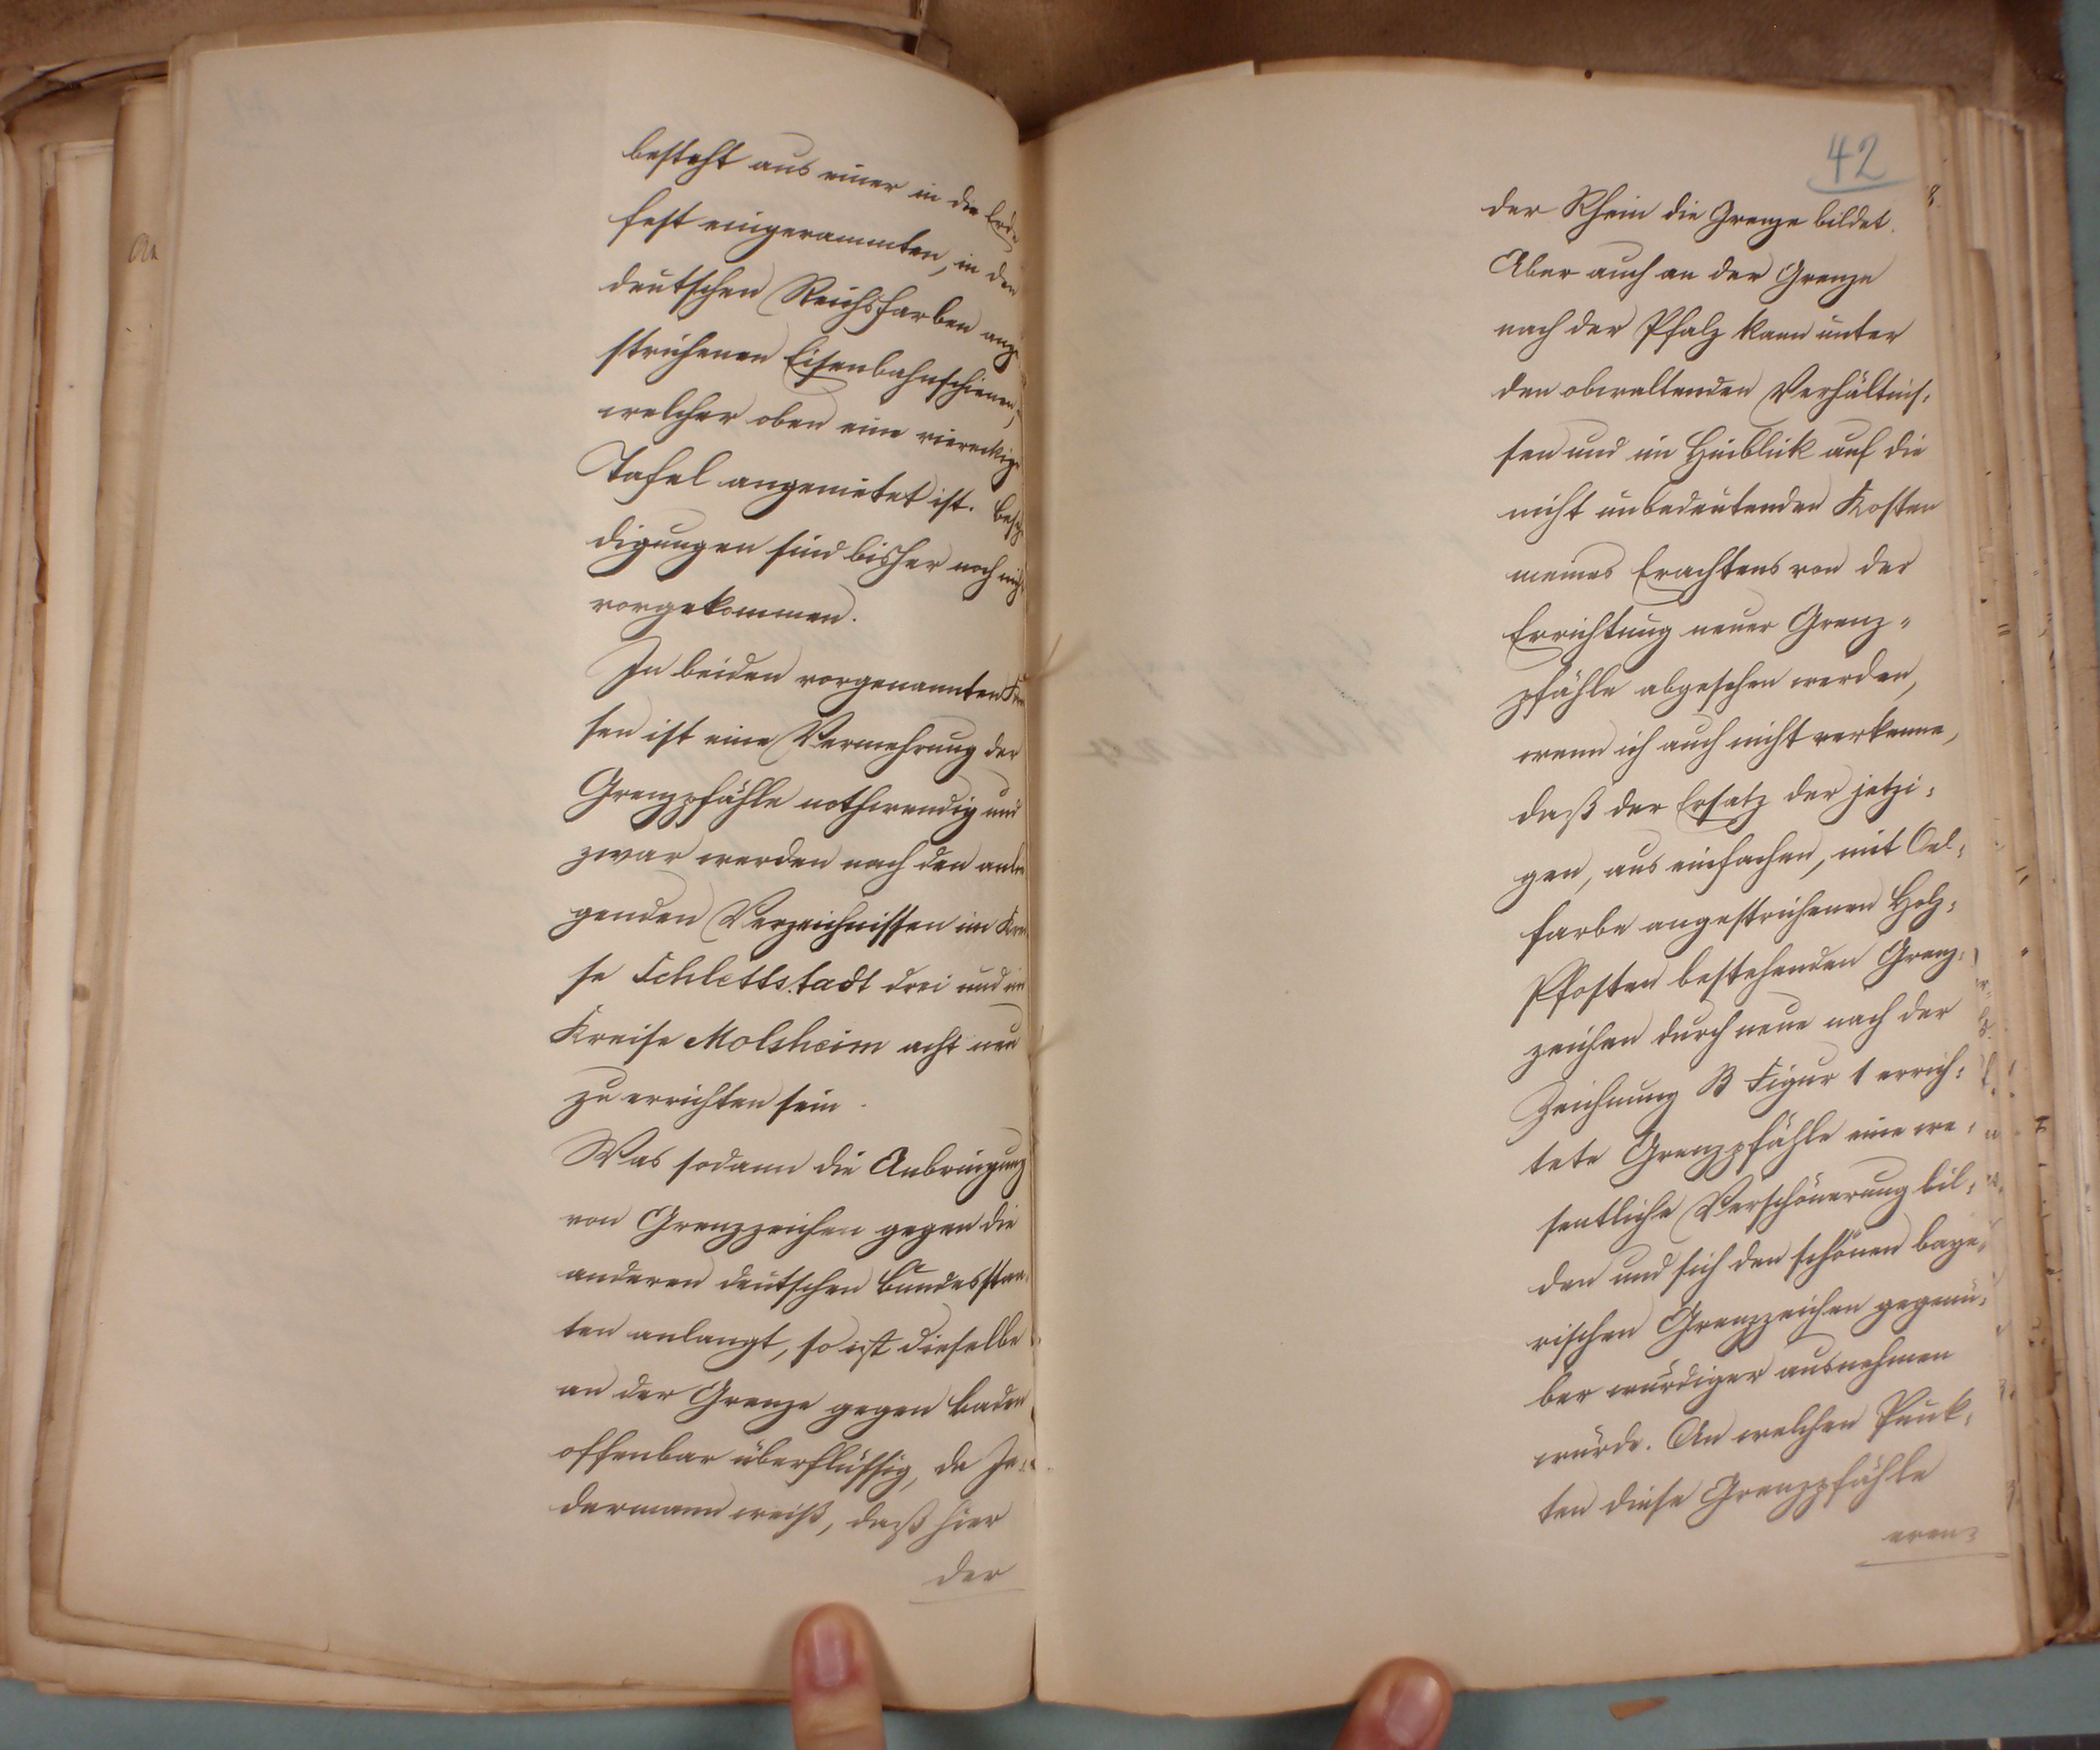 besteht aus einer in die Erde
fest eingerammten, in den
deutschen Reichsfarben ange
strichenen Eisenbahnschiene,
welcher oben eine viereckige
Tafel angenietet ist. Beschä
digungen sind bisher noch nicht
vorgekommen.
In beiden vorgenannten Krei
sen ist eine Vermehrung der
Grenzpfähle nothwendig und
zwar werden nach den anlie
genden Verzeichnissen im Krei
se Schlettstadt drei und im
Kreise Molsheim acht neu
zu errichten sein.
Was sodann die Anbringung
von Grenzzeichen gegen die
anderen deutschen Bundesstaa
ten anlangt, so ist dieselbe
an der Grenze gegen Baden
offenbar überflüssig, da Je-
dermann weiß, daß hier
der
42
der Rhein die Grenze bildet.
Aber auch an der Grenze
nach der Pfalz kann unter
den obwaltenden Verhältnis-
sen und im Hinblick auf die
nicht unbedeutenden Kosten
meines Erachtens von der
Errichtung neuer Grenz-
pfähle abgesehen werden,
wenn ich auch nicht verkenne,
daß der Ersatz der jetzi-
gen, aus einfachen, mit Oel-
farbe angestrichenen Holz-
Pfosten bestehenden Grenz-
zeichen durch neue nach der
Zeichnung B Figur 1 errich-
tete Grenzpfähle eine we-
sentliche Verschönerung bil-
den und sich den schönen baye-
rischen Grenzzeichen gegenü-
ber würdiger ausnehmen
würde. An welchen Punk-
ten diese Grenzpfähle